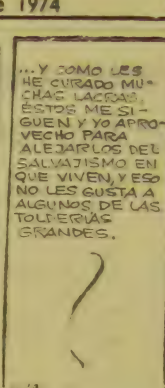 e 1974
...Y COMO LES
HE CURADO MU-
CHAS LACRAS,
ÉSTOS ME SI-
GUEN Y YO APRO-
VECHO PARA
ALEJARLOS DEL
SALVAJISMO EN
QUE VIVEN, Y ESO
NO LES GUSTA A
ALGUNOS DE LAS
TOLDERÍAS
GRANDES.